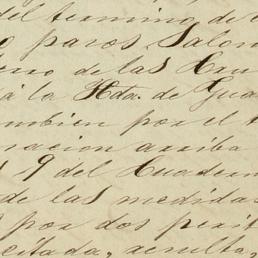 del termino de
paros, Salom
de las Cru
á la Hda. de Gua
tambien por el
nacion arriba
9 del Cuadern
de las medidas
por dos perit
citada, resulta